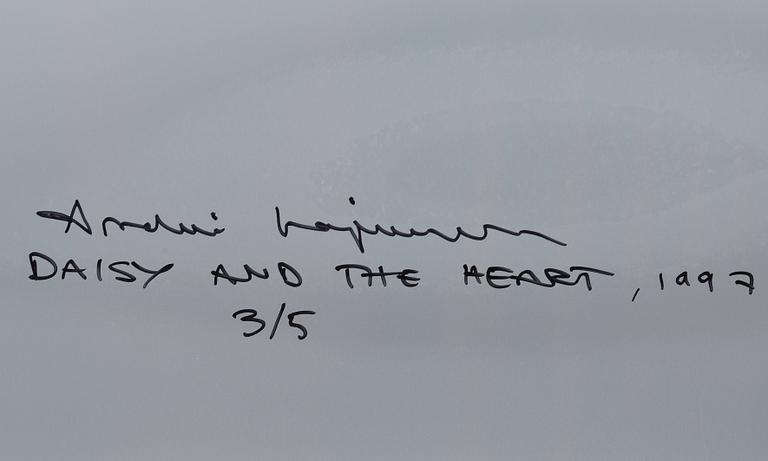 Andrei Lajunen
DAISY AND THE HEART, 1997
3/5